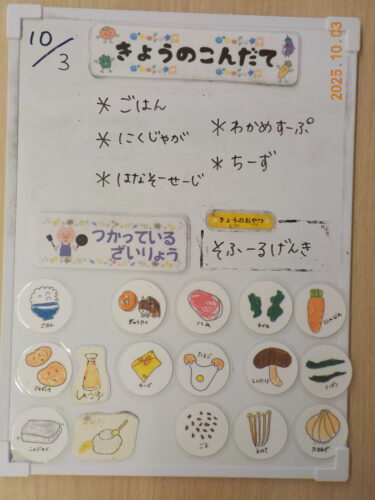 10/3
きょうのこんだて
2025.10.03
＊ごはん
＊にくじゃが
＊はなそーせーじ
＊わかめすーぷ
＊ちーず
つかっている
ざいりょう
きょうのおやつ
そふーるげんき
ごはん
ぎゅうにく
ハム
わかめ
にんじん
じゃがいも
しょうゆ
チーズ
たまご
しいたけ
こんにゃく
ごま
えのき
たまねぎ